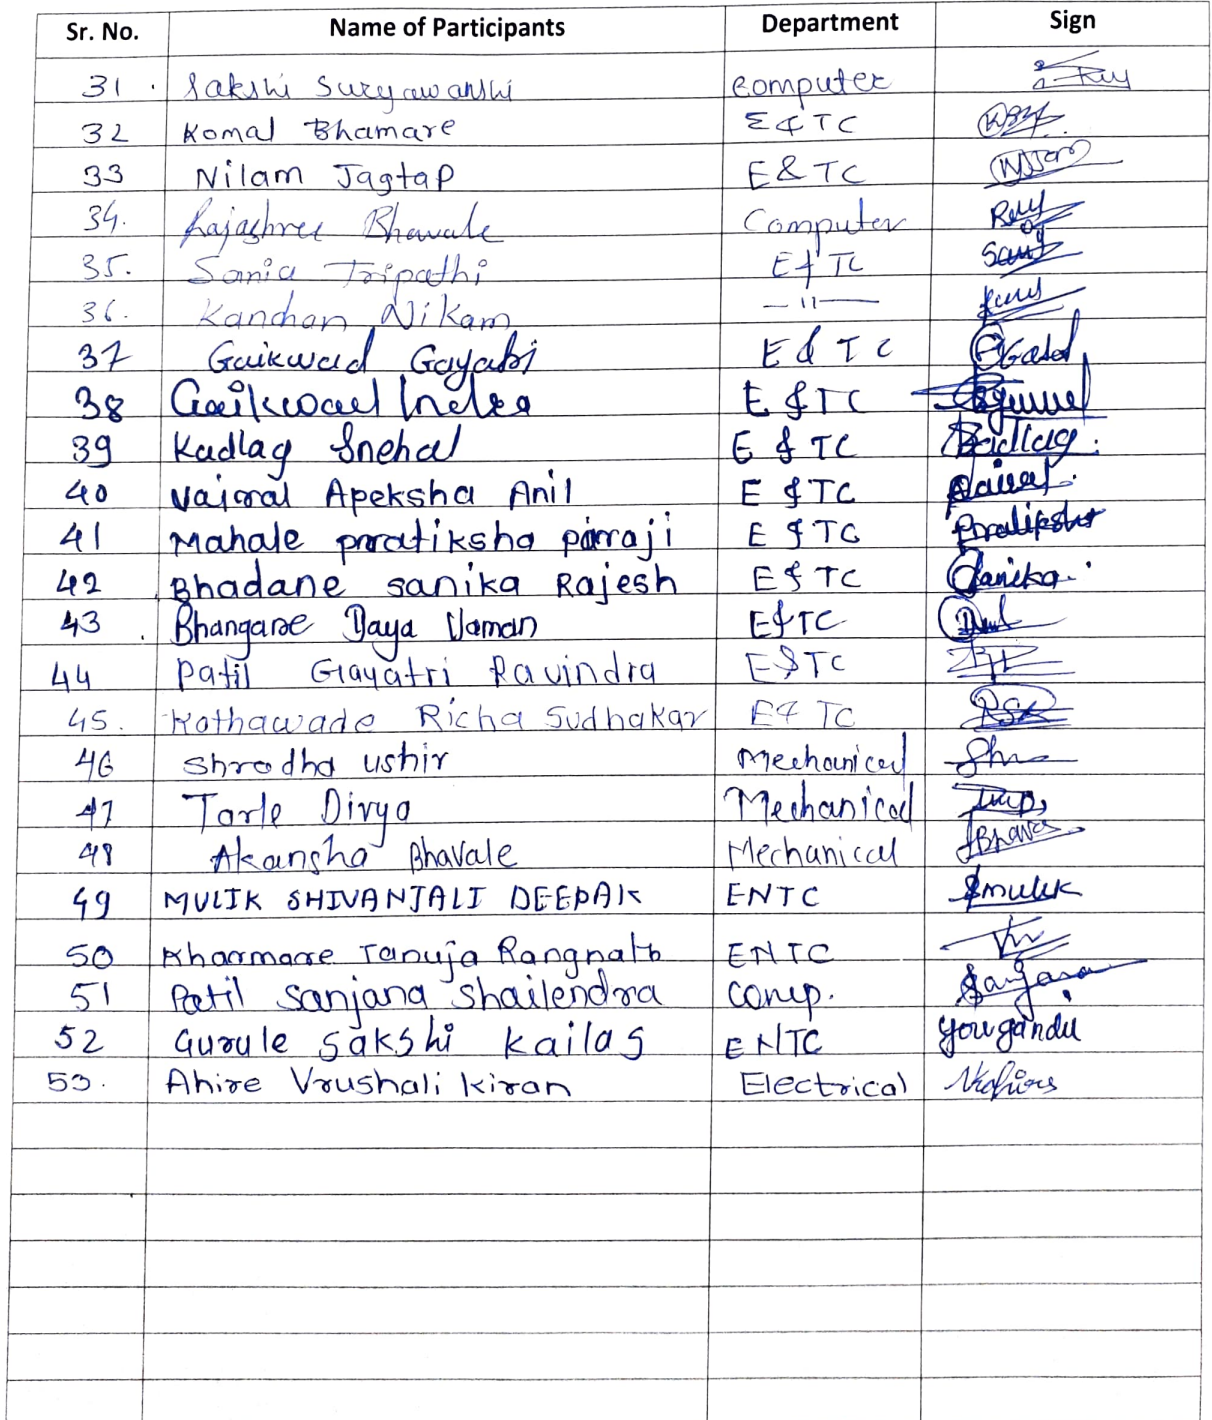 Sr. No. Name of Participants Department Sign
31. Sakshi Suryawanshi Computer
32 Komal Bhamare E&TC
33 Nilam Jagtap E&TC
34. Rajashree Bhavale Computer
35. Sania Tripathi E&TC
36. Kanchan Nikam —11—
37 Gaikwad Gayatri E&TC
38 Gaikwad Indra E&TC
39 Kadlag Snehal E&TC Kadlag.
40 Vajoral Apeksha Anil E&TC
41 Mahale pratiksha parraji E&TC Pratiksha
42 Bhadane sanika Rajesh E&TC Sanika
43 Bhangare Daya Vaman E&TC
44 Patil Gayatri Ravindra E&TC
45. Kothawade Richa Sudhakar E&TC RSK
46 Shradha ushir Mechanical
47 Tarle Divya Mechanical
48 Akansha Bhavale Mechanical
49 MULIK SHIVANJALI DEEPAK ENTC Smulik
50 Kharmare Tanuja Rangnath ENTC
51 Patil Sanjana Shailendra Comp. Sanjana
52 Gurule Sakshi Kailas ENTC
53. Ahire Vrushali Kiran Electrical